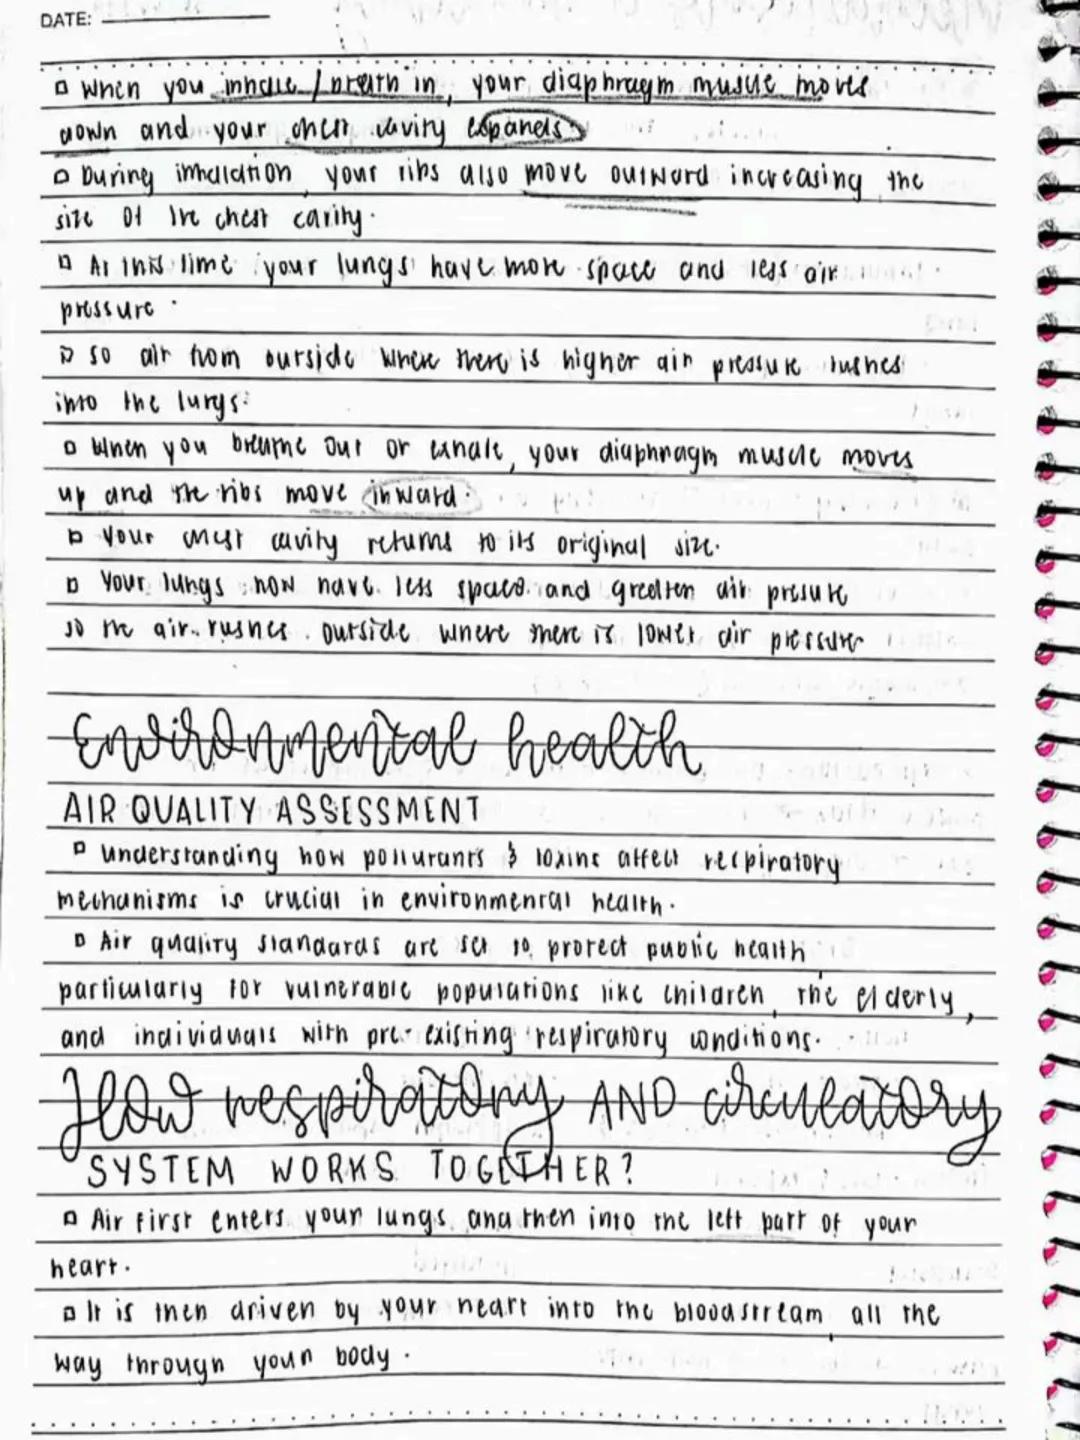 DATE:
When you inhale / breath in, your diaphragm muscle moves
down and your chest cavity expands.
During inhalation, your ribs also move outward increasing the
size of the chest cavity.
At this time your lungs have more space and less air
pressure.
so air from outside where there is higher air pressure rushes
into the lungs.
When you breathe out or exhale, your diaphragm muscle moves
up and the ribs move inward.
Your chest cavity returns to its original size.
Your lungs now have less space and greater air presure
so the air rushes outside where there is lower air pressure
Environmental health
AIR QUALITY ASSESSMENT
Understanding how pollutants & toxins affect respiratory
mechanisms is crucial in environmental health.
Air quality standards are set to protect public health,
particularly for vulnerable populations like children, the elderly,
and individuals with pre-existing respiratory conditions.
How respiratory AND circulatory
SYSTEM WORKS TOGETHER?
Air first enters your lungs and then into the left part of your
heart.
It is then driven by your heart into the bloodstream, all the
way through your body.